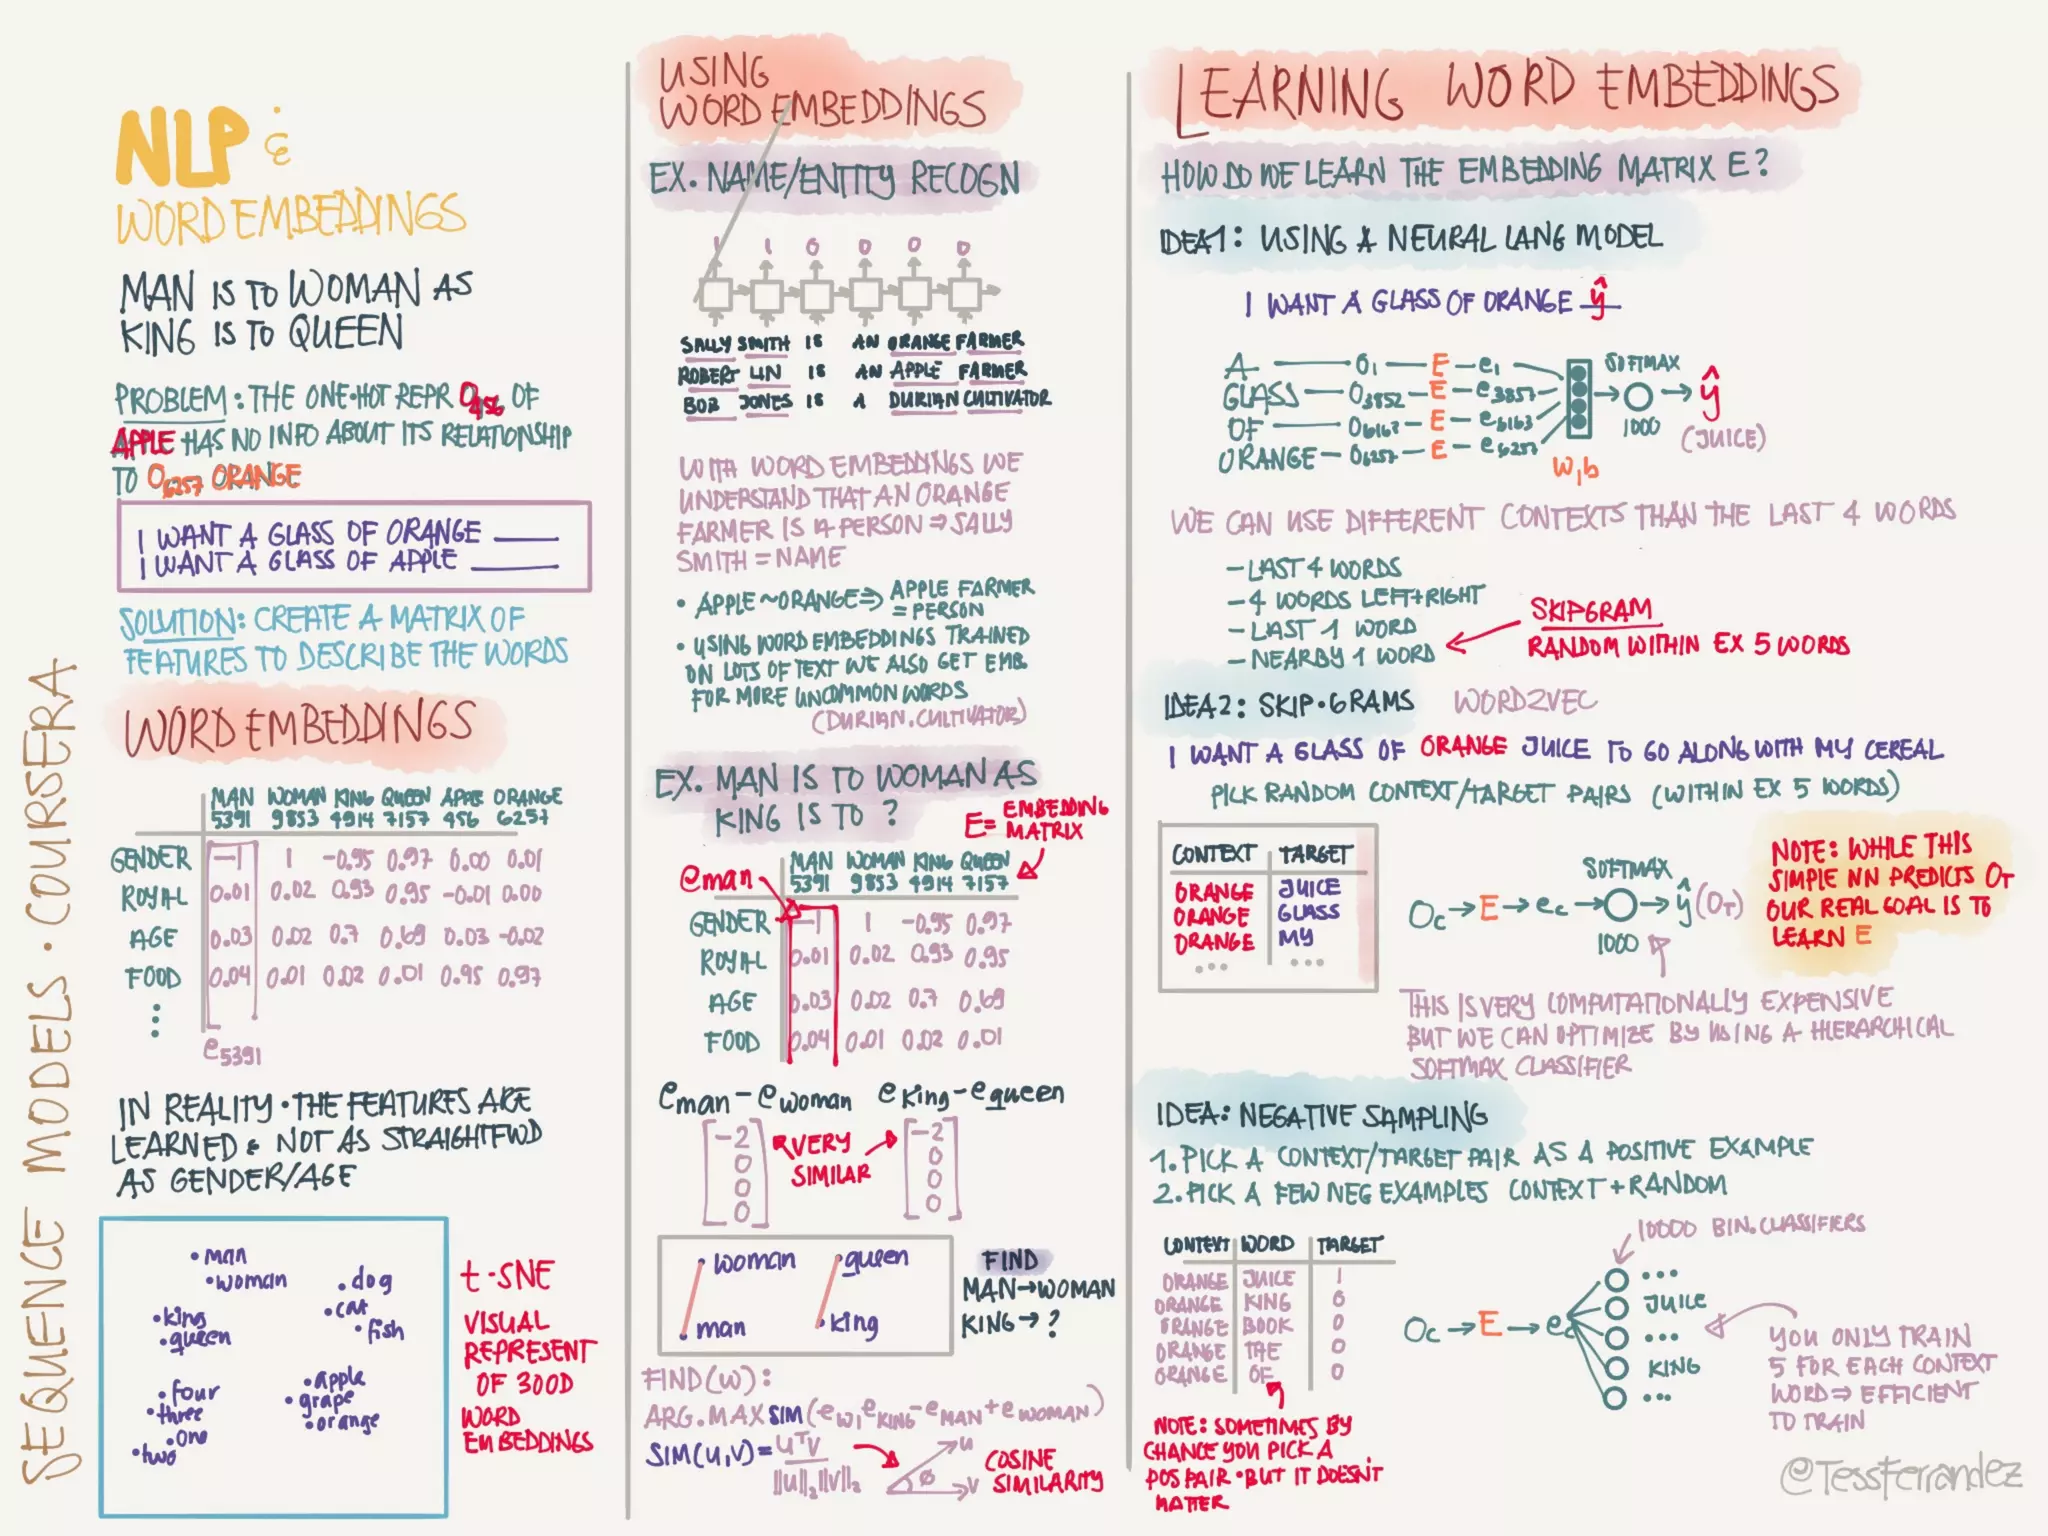 SEQUENCE MODELS · COURSERA
NLP &
WORD EMBEDDINGS
MAN IS TO WOMAN AS
KING IS TO QUEEN
PROBLEM: THE ONE·HOT REPR O456 OF
APPLE HAS NO INFO ABOUT ITS RELATIONSHIP
TO O6257 ORANGE
I WANT A GLASS OF ORANGE ____
I WANT A GLASS OF APPLE ____
SOLUTION: CREATE A MATRIX OF
FEATURES TO DESCRIBE THE WORDS
WORD EMBEDDINGS
MAN WOMAN KING QUEEN APPLE ORANGE
5391 9853 4914 7157 456 6257
GENDER -1 1 -0.95 0.97 0.00 0.01
ROYAL 0.01 0.02 0.93 0.95 -0.01 0.00
AGE 0.03 0.02 0.7 0.69 0.03 -0.02
FOOD 0.04 0.01 0.02 0.01 0.95 0.97
e5391
IN REALITY · THE FEATURES ARE
LEARNED & NOT AS STRAIGHTFWD
AS GENDER/AGE
man
woman
dog
cat
fish
king
queen
four
three
one
two
apple
grape
orange
t-SNE
VISUAL
REPRESENT
OF 300D
WORD
EMBEDDINGS
USING
WORD EMBEDDINGS
EX. NAME/ENTITY RECOGN
1 1 0 0 0 0
SALLY SMITH IS AN ORANGE FARMER
ROBERT LIN IS AN APPLE FARMER
BOB JONES IS A DURIAN CULTIVATOR
WITH WORD EMBEDDINGS WE
UNDERSTAND THAT AN ORANGE
FARMER IS A PERSON ⇒ SALLY
SMITH = NAME
• APPLE ~ ORANGE ⇒ APPLE FARMER
= PERSON
• USING WORD EMBEDDINGS TRAINED
ON LOTS OF TEXT WE ALSO GET EMB.
FOR MORE UNCOMMON WORDS
(DURIAN, CULTIVATOR)
EX. MAN IS TO WOMAN AS
KING IS TO ?
E = EMBEDDING
MATRIX
eman
MAN WOMAN KING QUEEN
5391 9853 4914 7157
GENDER -1 1 -0.95 0.97
ROYAL 0.01 0.02 0.93 0.95
AGE 0.03 0.02 0.7 0.69
FOOD 0.04 0.01 0.02 0.01
eman - ewoman eking - equeen
[-2 0 0 0] VERY SIMILAR [-2 0 0 0]
woman queen
man king
FIND
MAN → WOMAN
KING → ?
FIND(W):
ARG.MAX SIM(eW, eKING - eMAN + eWOMAN)
SIM(U,V) = UᵀV / ||U||₂ ||V||₂
U
ø
V
COSINE
SIMILARITY
LEARNING WORD EMBEDDINGS
HOW DO WE LEARN THE EMBEDDING MATRIX E?
IDEA1: USING A NEURAL LANG MODEL
I WANT A GLASS OF ORANGE ŷ
A — O1 — E — e1
GLASS — O3852 — E — e3857
OF — O6163 — E — e6163
ORANGE — O6257 — E — e6257
W,b
SOFTMAX
1000
ŷ
(JUICE)
WE CAN USE DIFFERENT CONTEXTS THAN THE LAST 4 WORDS
- LAST 4 WORDS
- 4 WORDS LEFT + RIGHT
- LAST 1 WORD
- NEARBY 1 WORD
SKIPGRAM
RANDOM WITHIN EX 5 WORDS
IDEA2: SKIP·GRAMS WORD2VEC
I WANT A GLASS OF ORANGE JUICE TO GO ALONG WITH MY CEREAL
PICK RANDOM CONTEXT/TARGET PAIRS (WITHIN EX 5 WORDS)
CONTEXT TARGET
ORANGE JUICE
ORANGE GLASS
ORANGE MY
... ...
Oc → E → ec → ŷ (OT)
SOFTMAX
1000
NOTE: WHILE THIS
SIMPLE NN PREDICTS OT
OUR REAL GOAL IS TO
LEARN E
THIS IS VERY COMPUTATIONALLY EXPENSIVE
BUT WE CAN OPTIMIZE BY USING A HIERARCHICAL
SOFTMAX CLASSIFIER
IDEA: NEGATIVE SAMPLING
1. PICK A CONTEXT/TARGET PAIR AS A POSITIVE EXAMPLE
2. PICK A FEW NEG EXAMPLES CONTEXT + RANDOM
CONTEXT WORD TARGET
ORANGE JUICE 1
ORANGE KING 0
ORANGE BOOK 0
ORANGE THE 0
ORANGE OF 0
NOTE: SOMETIMES BY
CHANCE YOU PICK A
POS PAIR · BUT IT DOESN'T
MATTER
10000 BIN. CLASSIFIERS
Oc → E → ec
...
JUICE
...
KING
...
YOU ONLY TRAIN
5 FOR EACH CONTEXT
WORD ⇒ EFFICIENT
TO TRAIN
@TessFerrandez